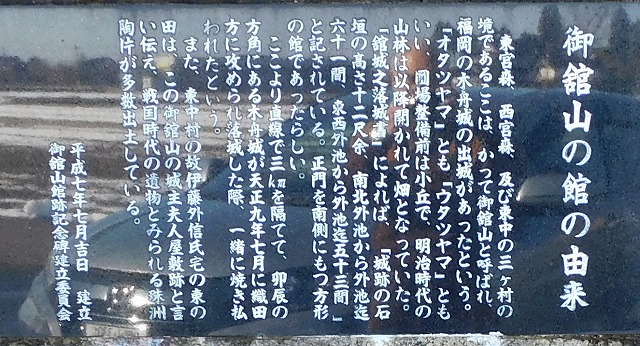 御舘山の館の由来
東宮森、西宮森、及び東中の三ヶ村の
境であるここは、かつて御舘山と呼ばれ、
福岡の木舟城の出城があったという。
『オタツヤマ』とも『ウタツヤマ』とも
いい、圃場整備前は小丘で、明治時代の
山林は以降開かれて畑となっていた。
「舘城之落城書」によれば、「城跡の石
垣の高さ十二尺余、南北外池から外池迄
六十一間、東西外池から外池迄五十三間」
と記されている。正門を南側にもつ方形
の館であったらしい。
ここより直線で三㎞を隔てて、卯辰の
方角にある木舟城が天正九年七月に織田
方に攻められ落城した際、一緒に焼き払
われたという。
また、東中村の故伊藤外信氏宅の東の
田は、この御舘山の城主夫人屋敷跡と言
い伝え、戦国時代の遺物とみられる珠洲
陶片が多数出土している。
平成七年七月吉日 建立
御舘山舘跡記念碑建立委員会